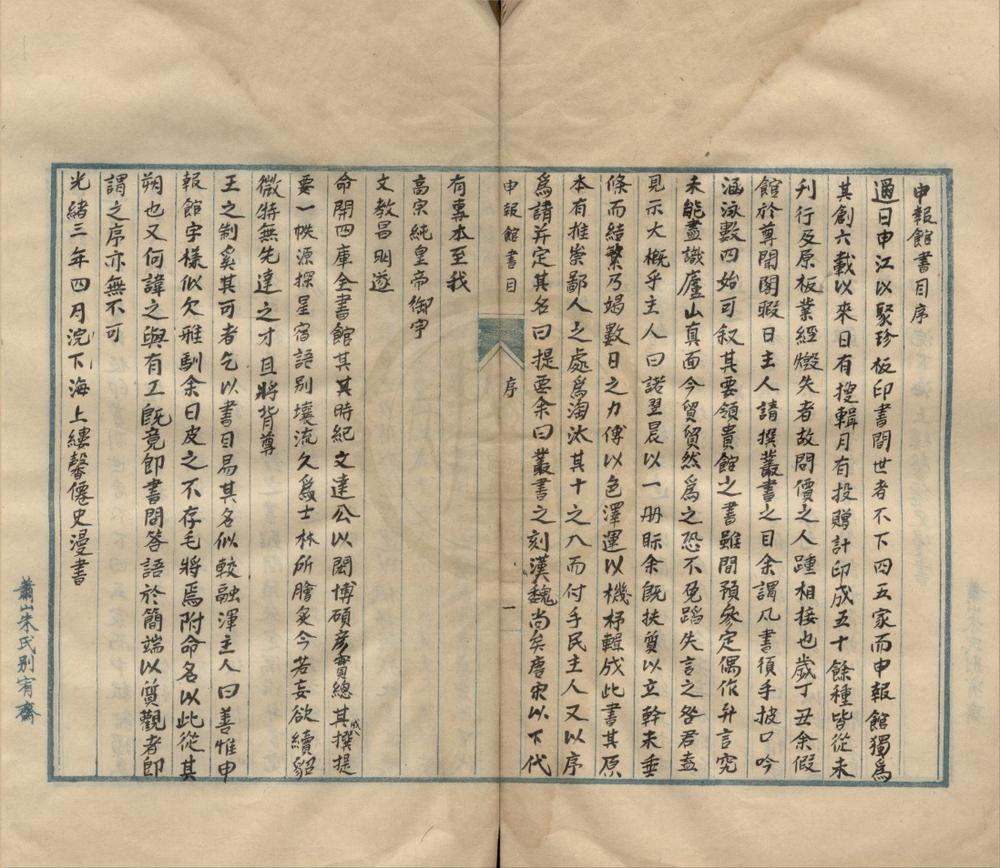 申報館書目序
邇日申江以聚珍板印書問世者不下四五家而申報館獨爲
其創六載以來日有搜輯月有投贈計印成五十餘種皆從未
刊行及原板業經燬失者故問價之人踵相接也歲丁丑余假
館於尊聞閣暇日主人請撰叢書之目余謂凡書須手披口吟
涵泳數四始可叙其要領貴館之書雖間預參定偶作弁言究
未能盡識廬山真面今貿貿然爲之恐不免蹈失言之咎君盍
見示大概乎主人曰諾翌晨以一册眎余旣扶質以立幹未垂
條而結繁乃竭數日之力傅以色澤運以機杼輯成此書其原
本有推崇鄙人之處爲淘汰其十之八而付手民主人又以序
爲請并定其名曰提要余曰叢書之刻漢魏尚矣唐宋以下代
申報館書目
序
一
有專本至我
高宗純皇帝御宇
文教昌明遂
命開四庫全書館其其時紀文達公以閎博碩彦實總其成撰提
要一帙源探星宿語別壤流久爲士林所膾炙今若妄欲續貂
微特無先達之才且將背尊
王之制奚其可者乞以書目易其名似較融渾主人曰善惟申
報館字樣似欠雅馴余曰皮之不存毛將焉附命名以此從其
朔也又何諱之與有工旣竟卽書問答語於簡端以質觀者卽
謂之序亦無不可
光緒三年四月浣下海上縷馨僊史漫書
蕭山朱氏別宥齋